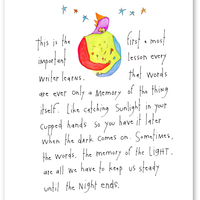 this is the first & most
important lesson every
writer learns. that words
are ever only a memory of the thing
itself. Like catching sunlight in your
cupped hands so you have it later
when the dark comes on. Sometimes,
the words, the memory of the LIGHT,
are all we have to keep us steady
until the Night ends.